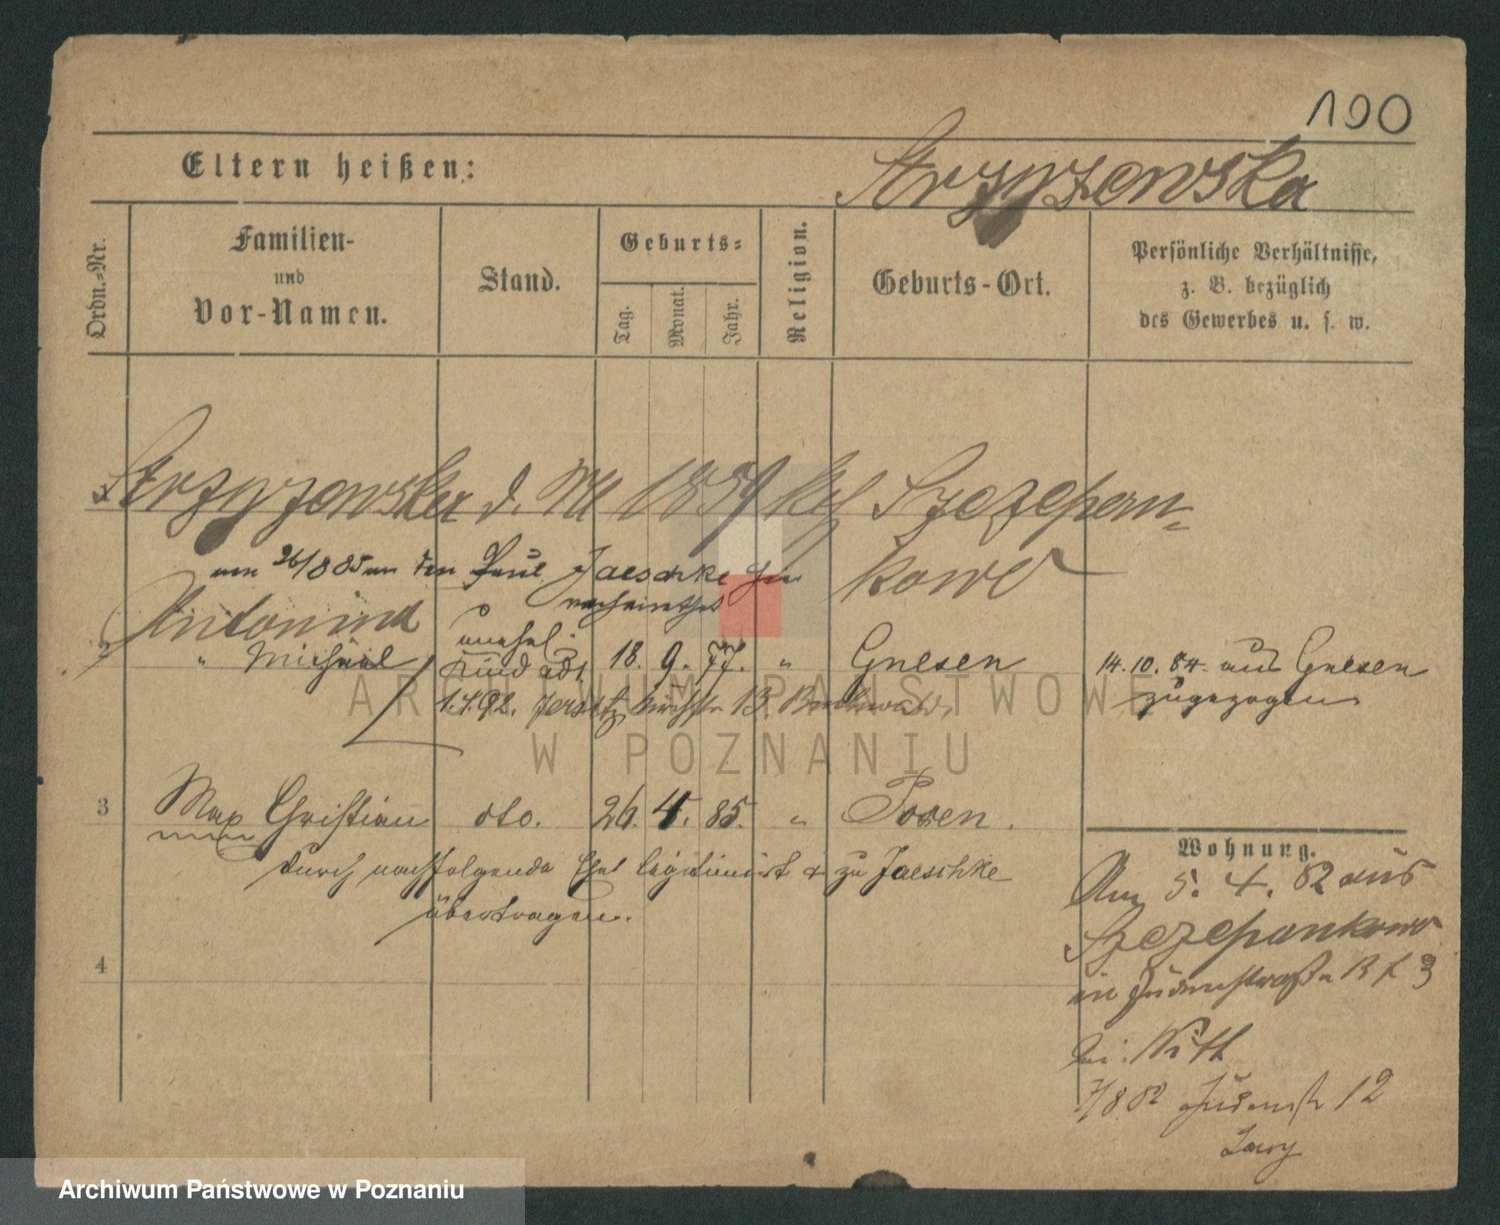 190
Eltern heißen:
Strzyzewska
Ordn.-Nr.
Familien-
und
Vor-Namen.
Stand.
Geburts-
Tag.
Monat.
Jahr.
Religion.
Geburts-Ort.
Persönliche Verhältnisse,
z. B. bezüglich
des Gewerbes u. s. w.
Strzyzewska d. 1859 kath Szczepan-
kowo
am 26/8 85 an den Paul Jaeschke
verheirathet
Antonina
unehel.
2 " Michael Kind 18. 9. 77. " Gnesen
14. 10. 84. aus Gnesen
zugezogen
1.4.92.
3 Max Christian dto. 26. 4. 85. " Posen.
durch nachfolgende Ehe legitimirt & zu Jaeschke
übertragen.
4
Wohnung.
Am 5. 4. 82 aus
Szczepankowo
in Judenstraße 3
bei Witt
7/8 82 Judenstr 12
ARCHIWUM PAŃSTWOWE
W POZNANIU
Archiwum Państwowe w Poznaniu